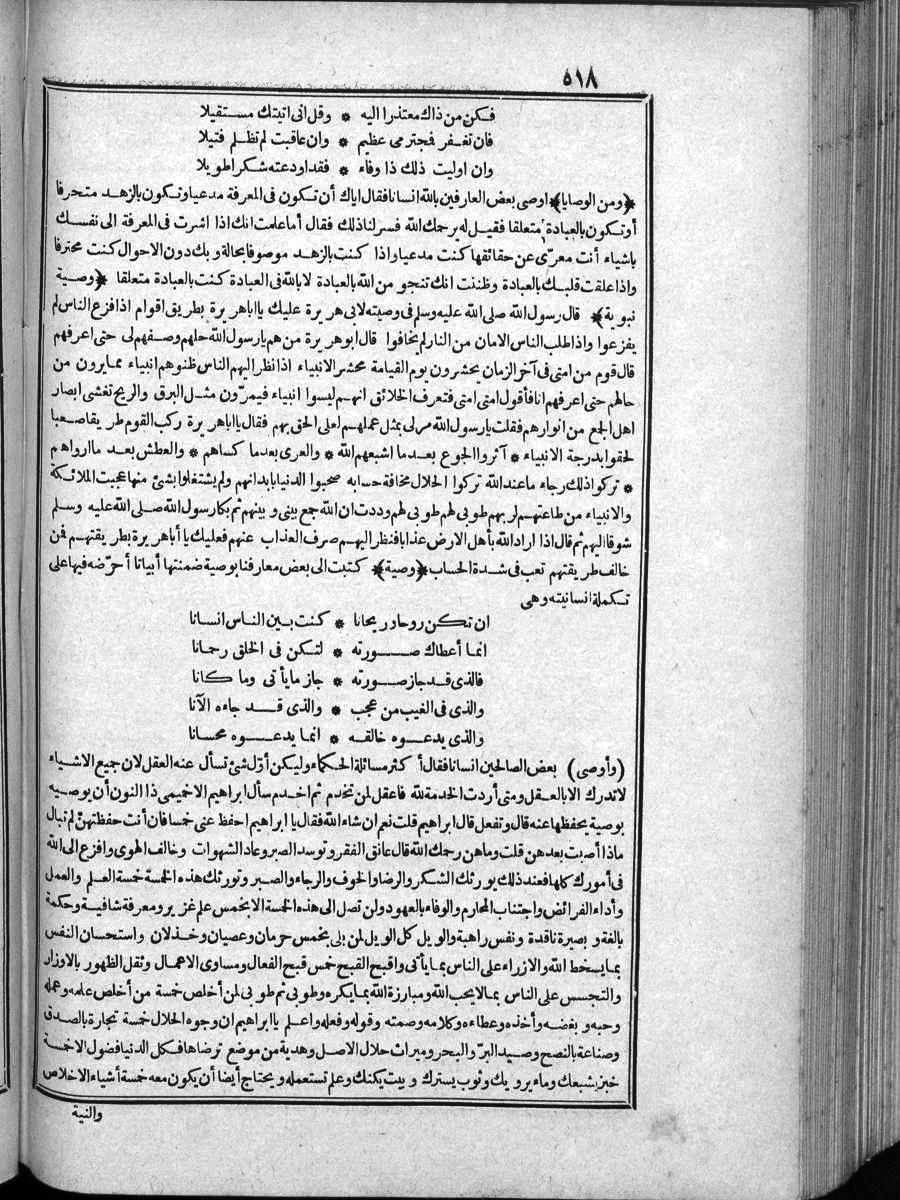 ٥١٨
فكن من ذاك معتذرا اليه * وقل انى اتيتك مستقيلا
فان تغفر فجترمى عظيم * وان عاقبت لم تظلم فتيلا
وان اوليت ذلك ذا وفاء * فقد اودعته شكرا طويلا
﴿ومن الوصايا﴾ اوصى بعض العارفين بالله انسانا فقال اياك أن تكون فى المعرفة مدعيا وتكون بالزهد متحرفا
أو تكون بالعبادة متعلقا فقيل له يرحمك الله فسر لنا ذلك فقال أما علمت انك اذا اشرت فى المعرفة الى نفسك
باشياء أنت معرّى عن حقائقها كنت مدعيا واذا كنت بالزهد موصوفا بحالة وبك دون الاحوال كنت محترفا
واذا علقت قلبك بالعبادة وظننت انك تنجو من الله بالعبادة لا بالله فى العبادة كنت بالعبادة متعلقا ﴿وصية
نبوية﴾ قال رسول الله صلى الله عليه وسلم فى وصيته لابى هريرة عليك يا اباهريرة بطريق اقوام اذا فزع الناس لم
يفزعوا واذا طلب الناس الامان من النار لم يخافوا قال ابوهريرة من هم يارسول الله حلهم وصفهم لى حتى اعرفهم
قال قوم من امتى فى آخر الزمان يحشرون يوم القيامة محشر الانبياء اذا نظر اليهم الناس ظنوهم انبياء مما يرون من
حالهم حتى اعرفهم انا فأقول امتى امتى فتعرف الخلائق انهم ليسوا انبياء فيمرّون مثل البرق والريح تغشى ابصار
اهل الجمع من انوارهم فقلت يارسول الله مر لى بمثل عملهم لعلى الحق بهم فقال يا اباهريرة ركب القوم طريقا صعبا
لحقوا بدرجة الانبياء * آثروا الجوع بعدما اشبعهم الله * والعرى بعدما كساهم * والعطش بعد ما ارواهم
* تركوا ذلك رجاء ما عند الله تركوا الحلال مخافة حسابه صحبوا الدنيا بابدانهم ولم يشتغلوا بشئ منها عجبت الملائكة
والانبياء من طاعتهم لربهم طوبى لهم طوبى لهم وددت ان الله جمع بينى وبينهم ثم بكا رسول الله صلى الله عليه وسلم
شوقا اليهم ثم قال اذا اراد الله بأهل الارض عذابا فنظر اليهم صرف العذاب عنهم فعليك يا أباهريرة بطريقتهم فمن
خالف طريقتهم تعب فى شدة الحساب ﴿وصية﴾ كتبت الى بعض معارفنا بوصية ضمنتها أبياتا أحرّضه فيها على
تكملة انسانيته وهى
ان تكن روحا وريحانا * كنت بين الناس انسانا
انما أعطاك صورته * لتكن فى الخلق رحمانا
فالذى قد جاز صورته * جاز ما يأتى وما كانا
والذى فى الغيب من عجب * والذى قد جاءه الآنا
والذى يدعوه خالقه * انما يدعوه محسانا
(وأوصى) بعض الصالحين انسانا فقال أكثر مسائلة الحكماء وليكن أوّل شئ تسأل عنه العقل لان جميع الاشياء
لا تدرك الا بالعقل ومتى أردت الخدمة لله فاعقل لمن تخدم ثم اخدم سأل ابراهيم الاخميمى ذا النون أن يوصيه
بوصية يحفظها عنه قال وتفعل قال ابراهيم قلت نعم ان شاء الله فقال يا ابراهيم احفظ عنى خمسا فان أنت حفظتهنّ لم تبال
ماذا أصبت بعدهن قلت وما هن رحمك الله قال عانق الفقر وتوسد الصبر وعاد الشهوات وخالف الهوى وافزع الى الله
فى أمورك كلها فعند ذلك يورثك الشكر والرضا والخوف والرجاء والصبر وتورثك هذه الخمسة خمسة العلم والعمل
وأداء الفرائض واجتناب المحارم والوفاء بالعهود ولن تصل الى هذه الخمسة الا بخمس علم غزير ومعرفة شافية وحكمة
بالغة وبصيرة ناقدة ونفس راهبة والويل كل الويل لمن بلى بخمس حرمان وعصيان وخذلان واستحسان النفس
بما يسخط الله والازراء على الناس بما يأتى واقبح القبح خمس قبح الفعال ومساوى الاعمال وثقل الظهور بالاوزار
والتجسس على الناس بما لا يحب الله ومبارزة الله بما يكره وطوبى ثم طوبى لمن أخلص خمسة من أخلص علمه وعمله
وحبه وبغضه وأخذه وعطاءه وكلامه وصمته وقوله وفعله واعلم يا ابراهيم ان وجوه الحلال خمسة تجارة بالصدق
وصناعة بالنصح وصيد البرّ والبحر وميراث حلال الاصل وهدية من موضع ترضاها فكل الدنيا فضول الا خمسة
خبز يشبعك وماء يرويك وثوب يسترك وبيت يكنك وعلم تستعمله ويحتاج أيضا أن يكون معه خمسة أشياء الاخلاص
والنية